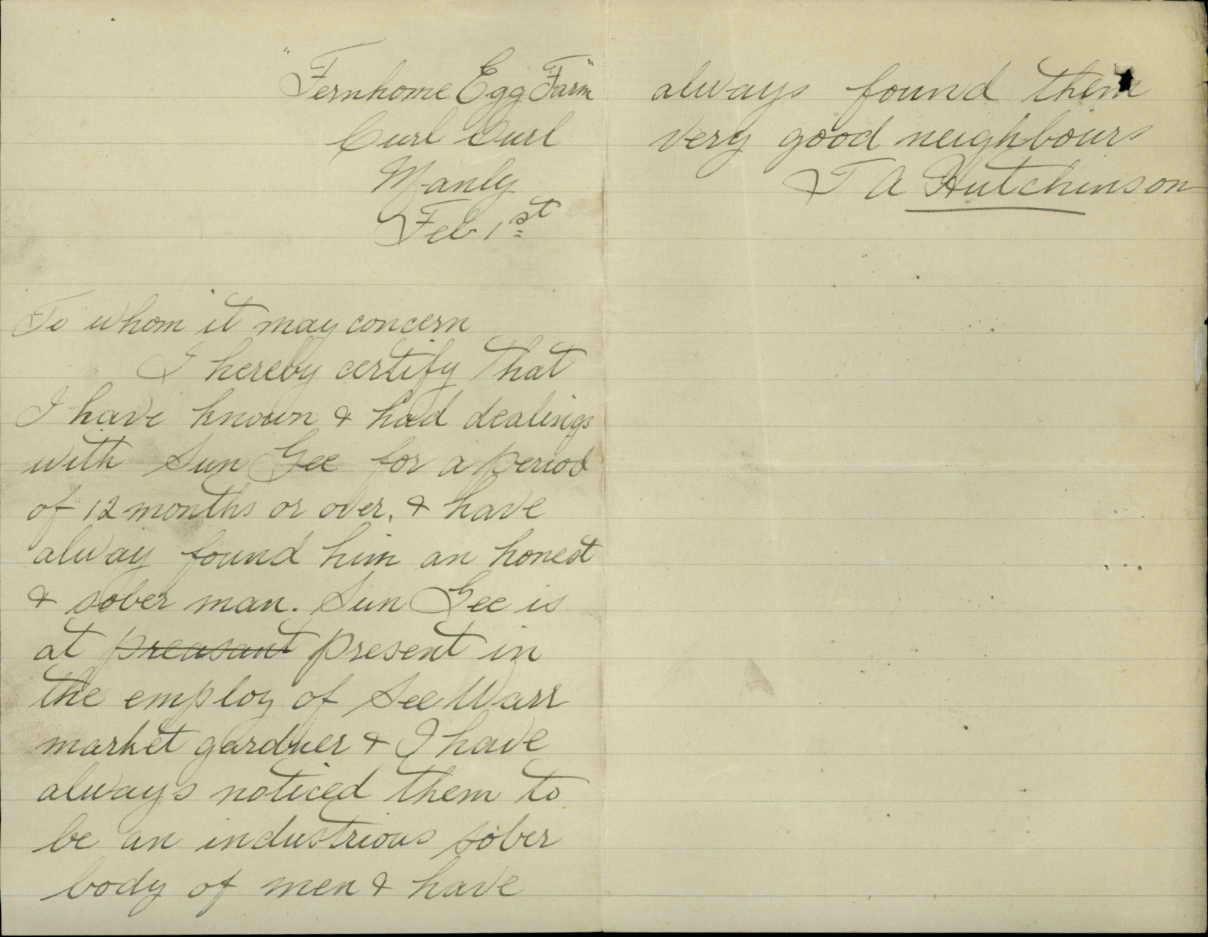 "Fernhome Egg Farm"
Curl Curl
Manly
Feb 1st
To whom it may concern
I hereby certify that
I have known & had dealings
with Sun Gee for a period
of 12 months or over. & have
alway found him an honest
& sober man. Sun Gee is
at preasant present in
the employ of See Warr
market gardner & I have
always noticed them to
be an industrious sober
body of men & have
always found them
very good neighbours
T A Hutchinson